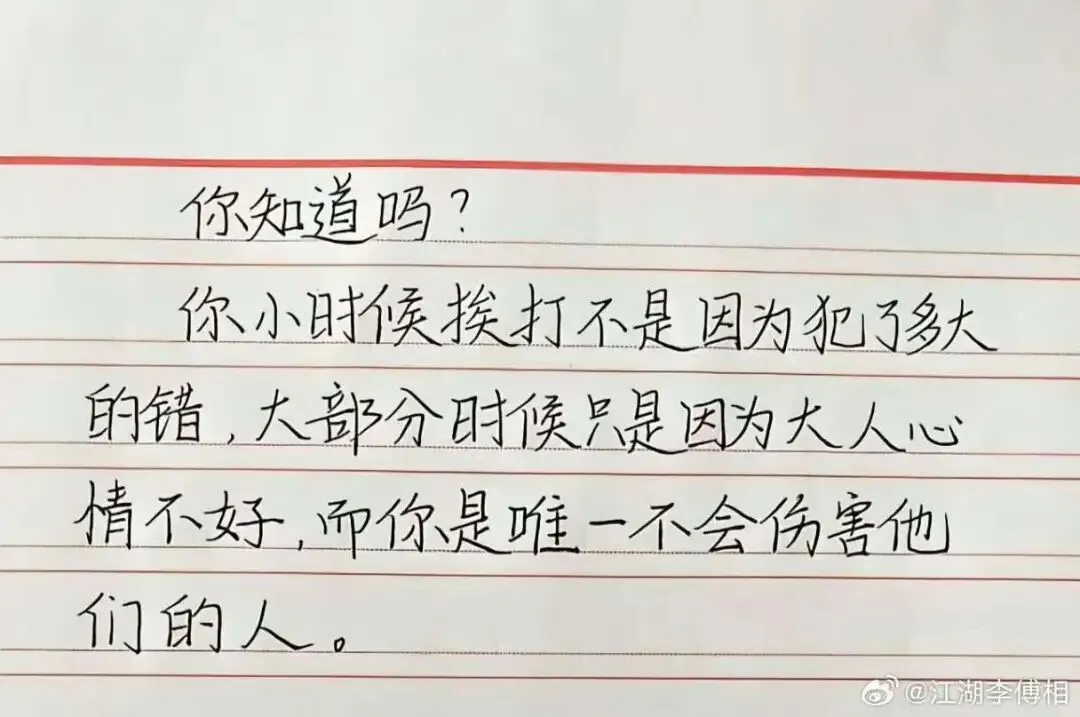 你知道吗？
你小时候挨打不是因为犯了多大
的错，大部分时候只是因为大人心
情不好，而你是唯一不会伤害他
们的人。
@江湖李傅相